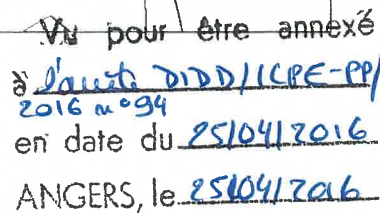 Vu pour être annexé
à l'arrêté DIDD/ICPE-PP/
2016 n°94
en date du 25/04/2016
ANGERS, le 25/04/2016